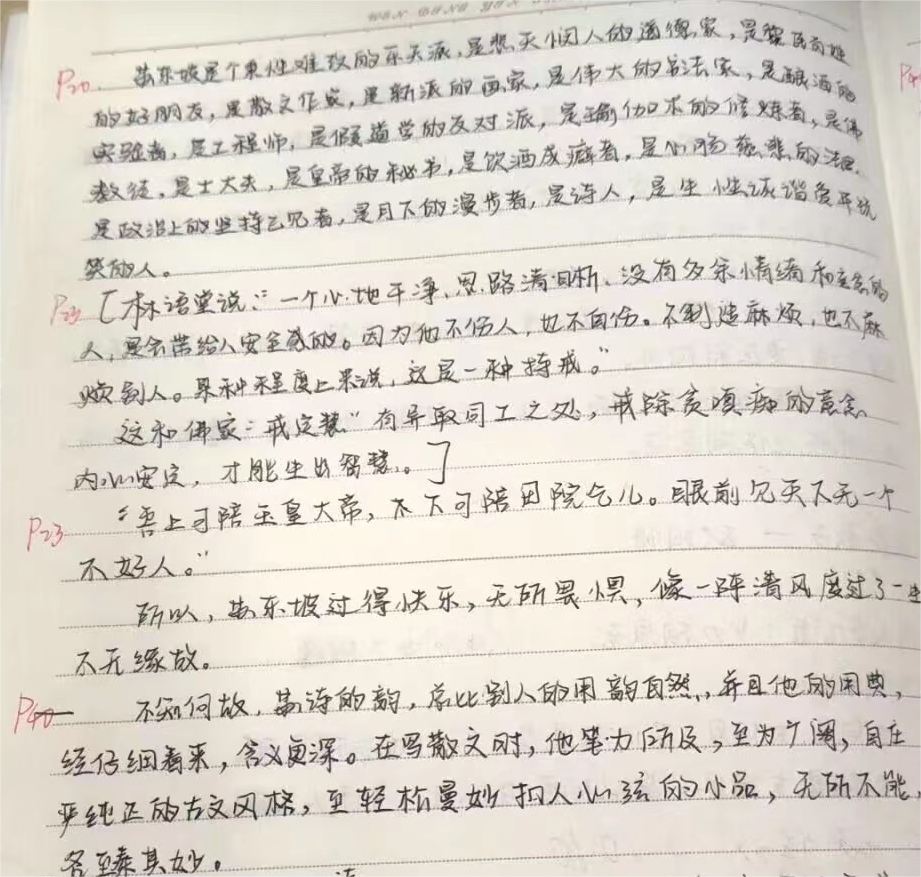 P20. 苏东坡是个秉性难改的乐天派,是悲天悯人的道德家,是黎民百姓
的好朋友,是散文作家,是新派的画家,是伟大的书法家,是酿酒的
实验者,是工程师,是假道学的反对派,是瑜伽术的修炼者,是佛
教徒,是士大夫,是皇帝的秘书,是饮酒成瘾者,是心肠慈悲的法官,
是政治上的坚持己见者,是月下的漫步者,是诗人,是生性诙谐爱开玩
笑的人。
P23 [林语堂说:“一个心地干净、思路清晰、没有多余情绪和妄念的
人,是会带给人安全感的。因为他不伤人,也不自伤。不制造麻烦,也不麻
烦别人。某种程度上来说,这是一种持戒。”
这和佛家“戒定慧”有异取同工之处,戒除贪嗔痴的意念
内心安定,才能生出智慧。]
P23 “吾上可陪玉皇大帝,下可陪田院乞儿。眼前见天下无一个
不好人。”
所以,苏东坡过得快乐,无所畏惧,像一阵清风度过了一生
不无缘故。
P40 不知何故,苏诗的韵,总比别人的用韵自然,并且他的用典,
经仔细看来,含义更深。在写散文时,他笔力所及,至为广阔,自庄
严纯正的古文风格,至轻松曼妙扣人心弦的小品,无所不能,
各臻其妙。